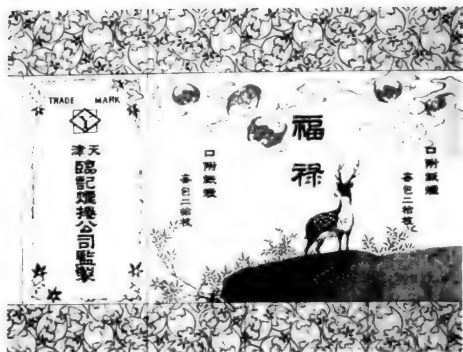 TRADE MARK
津天
臨記煙捲公司監製
福祿
口附紙煙
每包二拾枝
口附紙煙
每包二拾枝